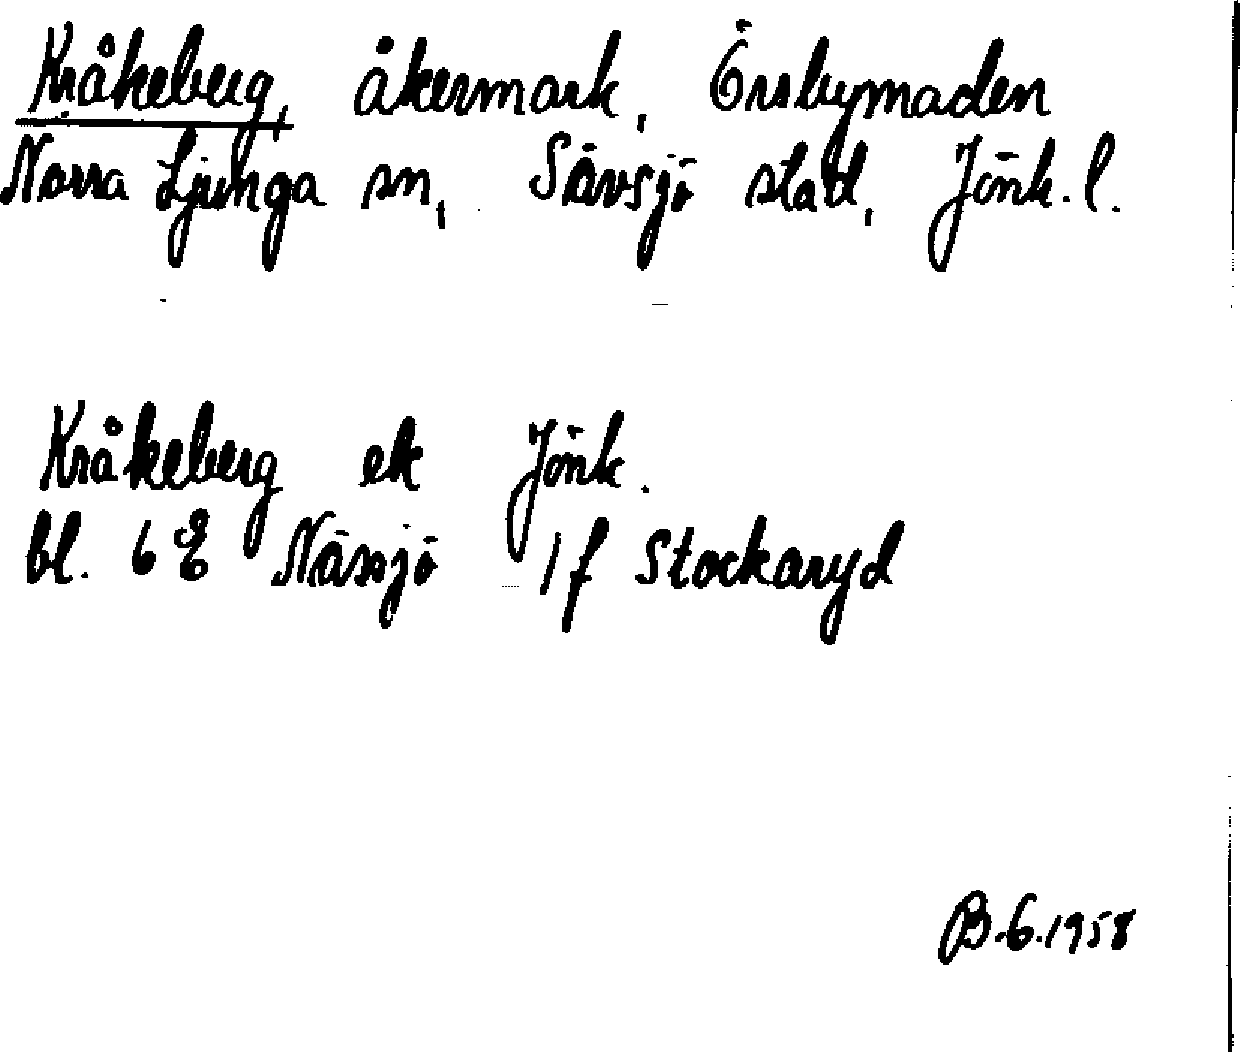 Kråkeberg, åkermark, Örsbymaden
Norra Ljunga sn, Sävsjö stad, Jönk. l.
Kråkeberg ek Jönk.
bl. 6 E Nässjö 1 f Stockaryd
B.G.1958